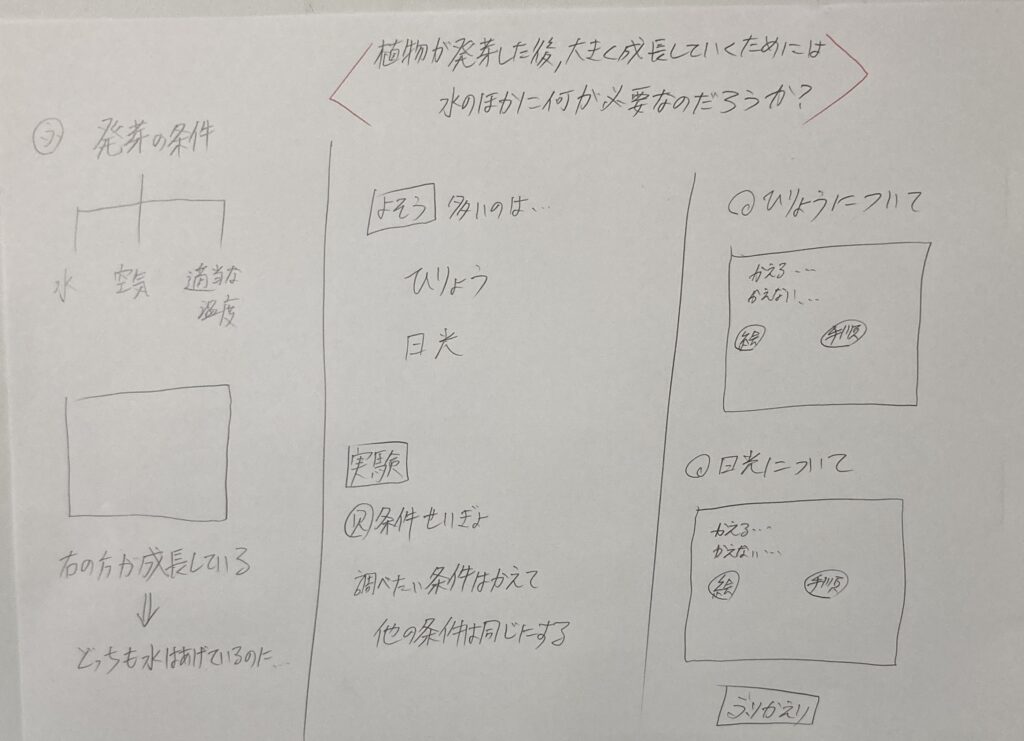 植物が発芽した後,大きく成長していくためには
水のほかに何が必要なのだろうか?
フ 発芽の条件
水 空気 適当な
温度
右の方が成長している
⇓
どっちも水はあげているのに...
よそう 多いのは...
ひりょう
日光
実験
条件せいぎょ
調べたい条件はかえて
他の条件は同じにする
ひりょうについて
かえる...
かえない...
絵 手順
日光について
かえる...
かえない...
絵 手順
ふりかえり